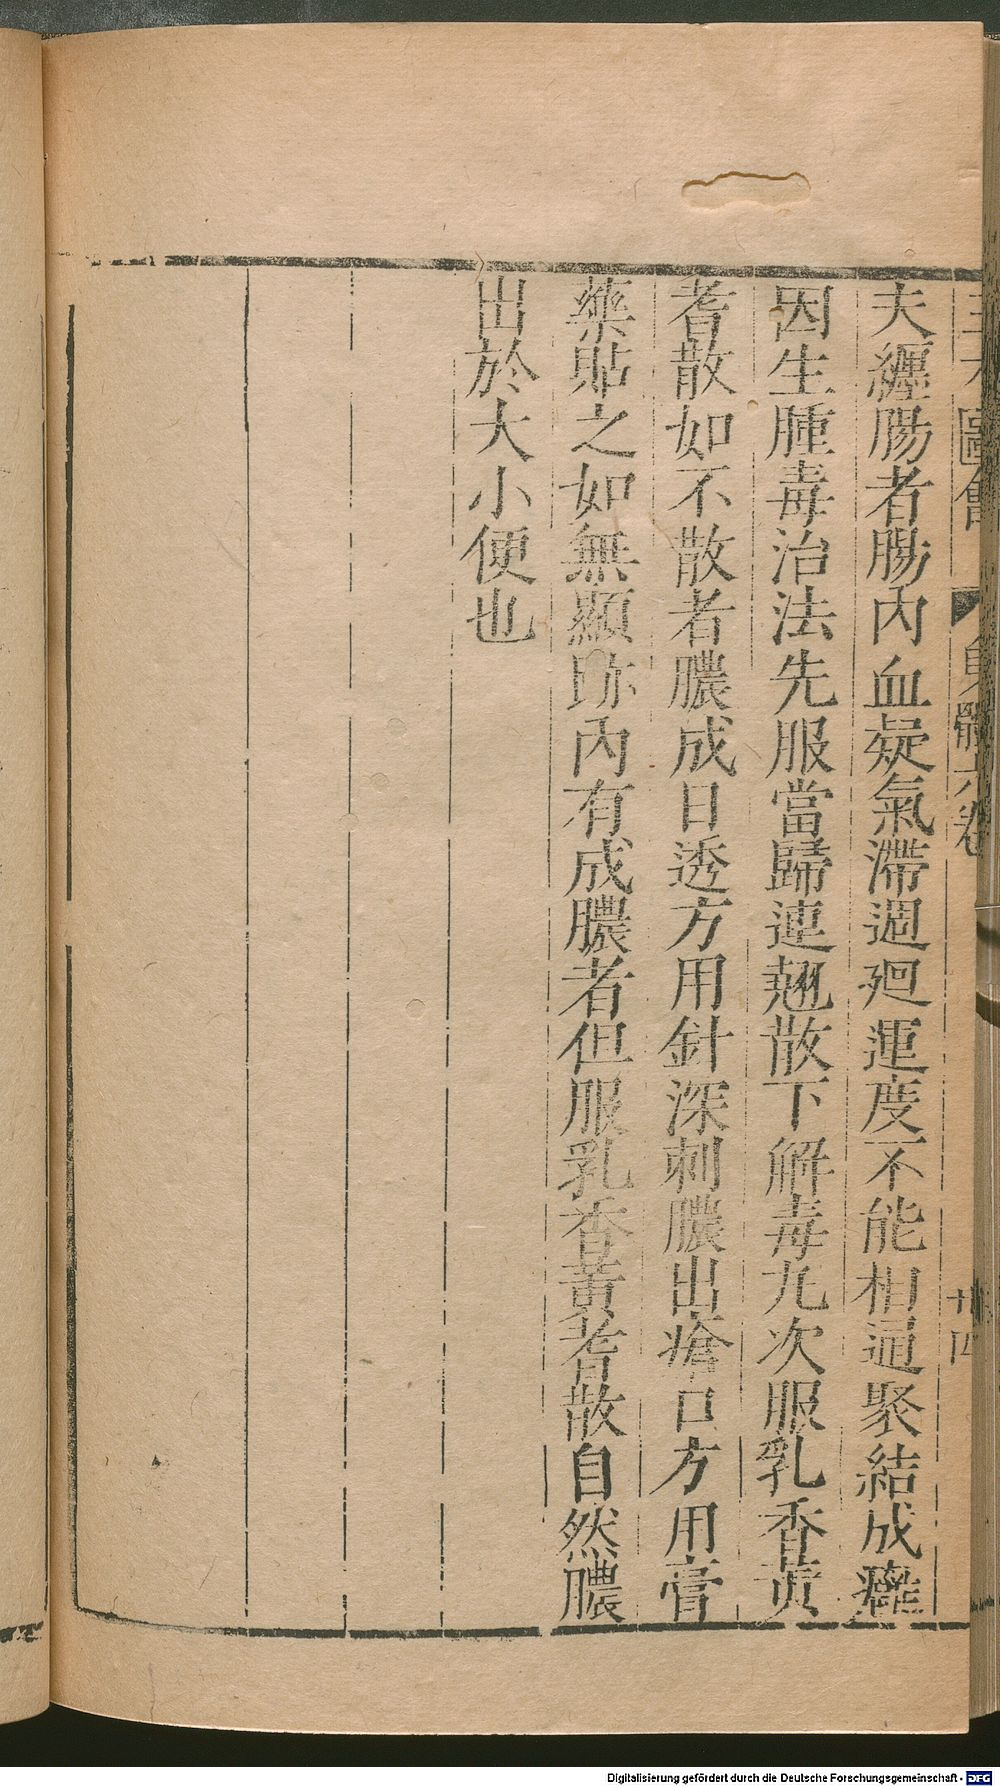 三才圖會 身體六卷 廿四
夫纏腸者腸內血凝氣滯週廻運度不能相通聚結成癰
因生腫毒治法先服當歸連翹散下解毒丸次服乳香黃
耆散如不散者膿成日透方用針深刺膿出瘡口方用膏
藥貼之如無顯跡內有成膿者但服乳香黃耆散自然膿
出於大小便也
Digitalisierung gefördert durch die Deutsche Forschungsgemeinschaft - DFG